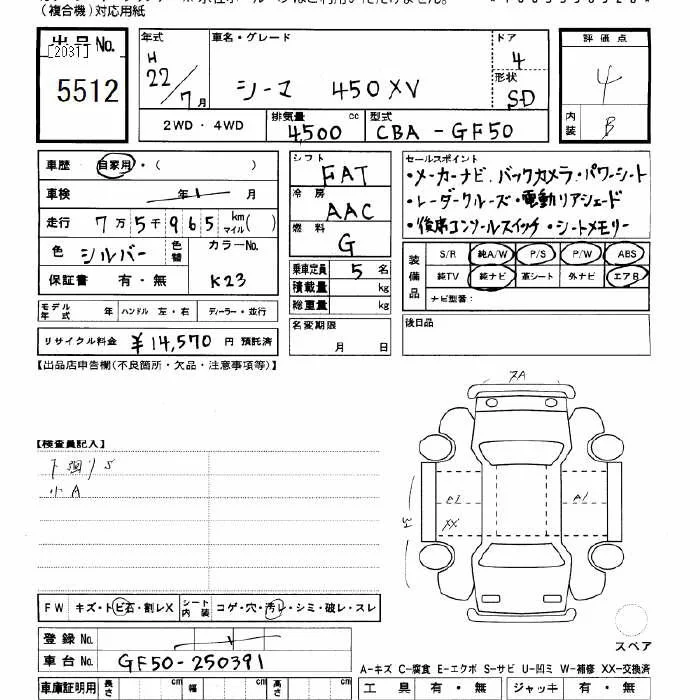 (複合機)対応用紙
出品No.
[2031]
5512
年式
H
22/7月
車名・グレード
シーマ 450XV
ドア
4
形状
SD
評価点
4
内装
B
2WD・4WD
排気量
4,500 cc
型式
CBA-GF50
車歴 自家用・( )
車検 年 月
走行 7万5千965 km マイル( )
色 シルバー 色替 カラーNo.
保証書 有・無 K23
シフト
FAT
冷房
AAC
燃料
G
乗車定員 5名
積載量 kg
総重量 kg
セールスポイント
・メーカーナビ.バックカメラ・パワーシート
・レーダークルーズ・電動リアシェード
・後席コンソールスイッチ・シートメモリー
装備品
S/R 純A/W P/S P/W ABS
純TV 純ナビ 革シート 外ナビ エアB
ナビ型番:
モデル年式 年 ハンドル 左・右 ディーラー・並行
リサイクル料金 ¥14,570円 預託済
名変期限
月 日
後日品
【出品店申告欄(不良箇所・欠品・注意事項等)】
【検査員記入】
下廻りS
小A
XX
FW キズ・トビ石・割レX シート内装 コゲ・穴・汚レ・シミ・破レ・スレ
登録No.
車台No. GF50-250391
車庫証明用 長さ cm 幅 cm 高さ cm
スペア
A-キズ C-腐食 E-エクボ S-サビ U-凹ミ W-補修 XX-交換済
工具 有・無 ジャッキ 有・無